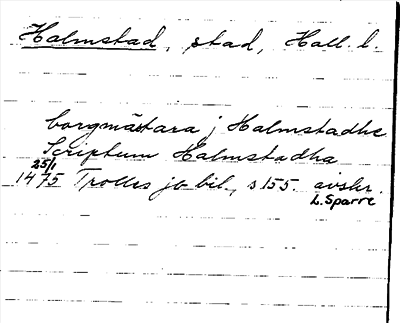 Halmstad, stad, Hall. l.
borgmästara j Halmstadhe
Scriptum Halmstadha
25/1
1475 Trolles jb bil., s 155. avskr.
L. Sparre